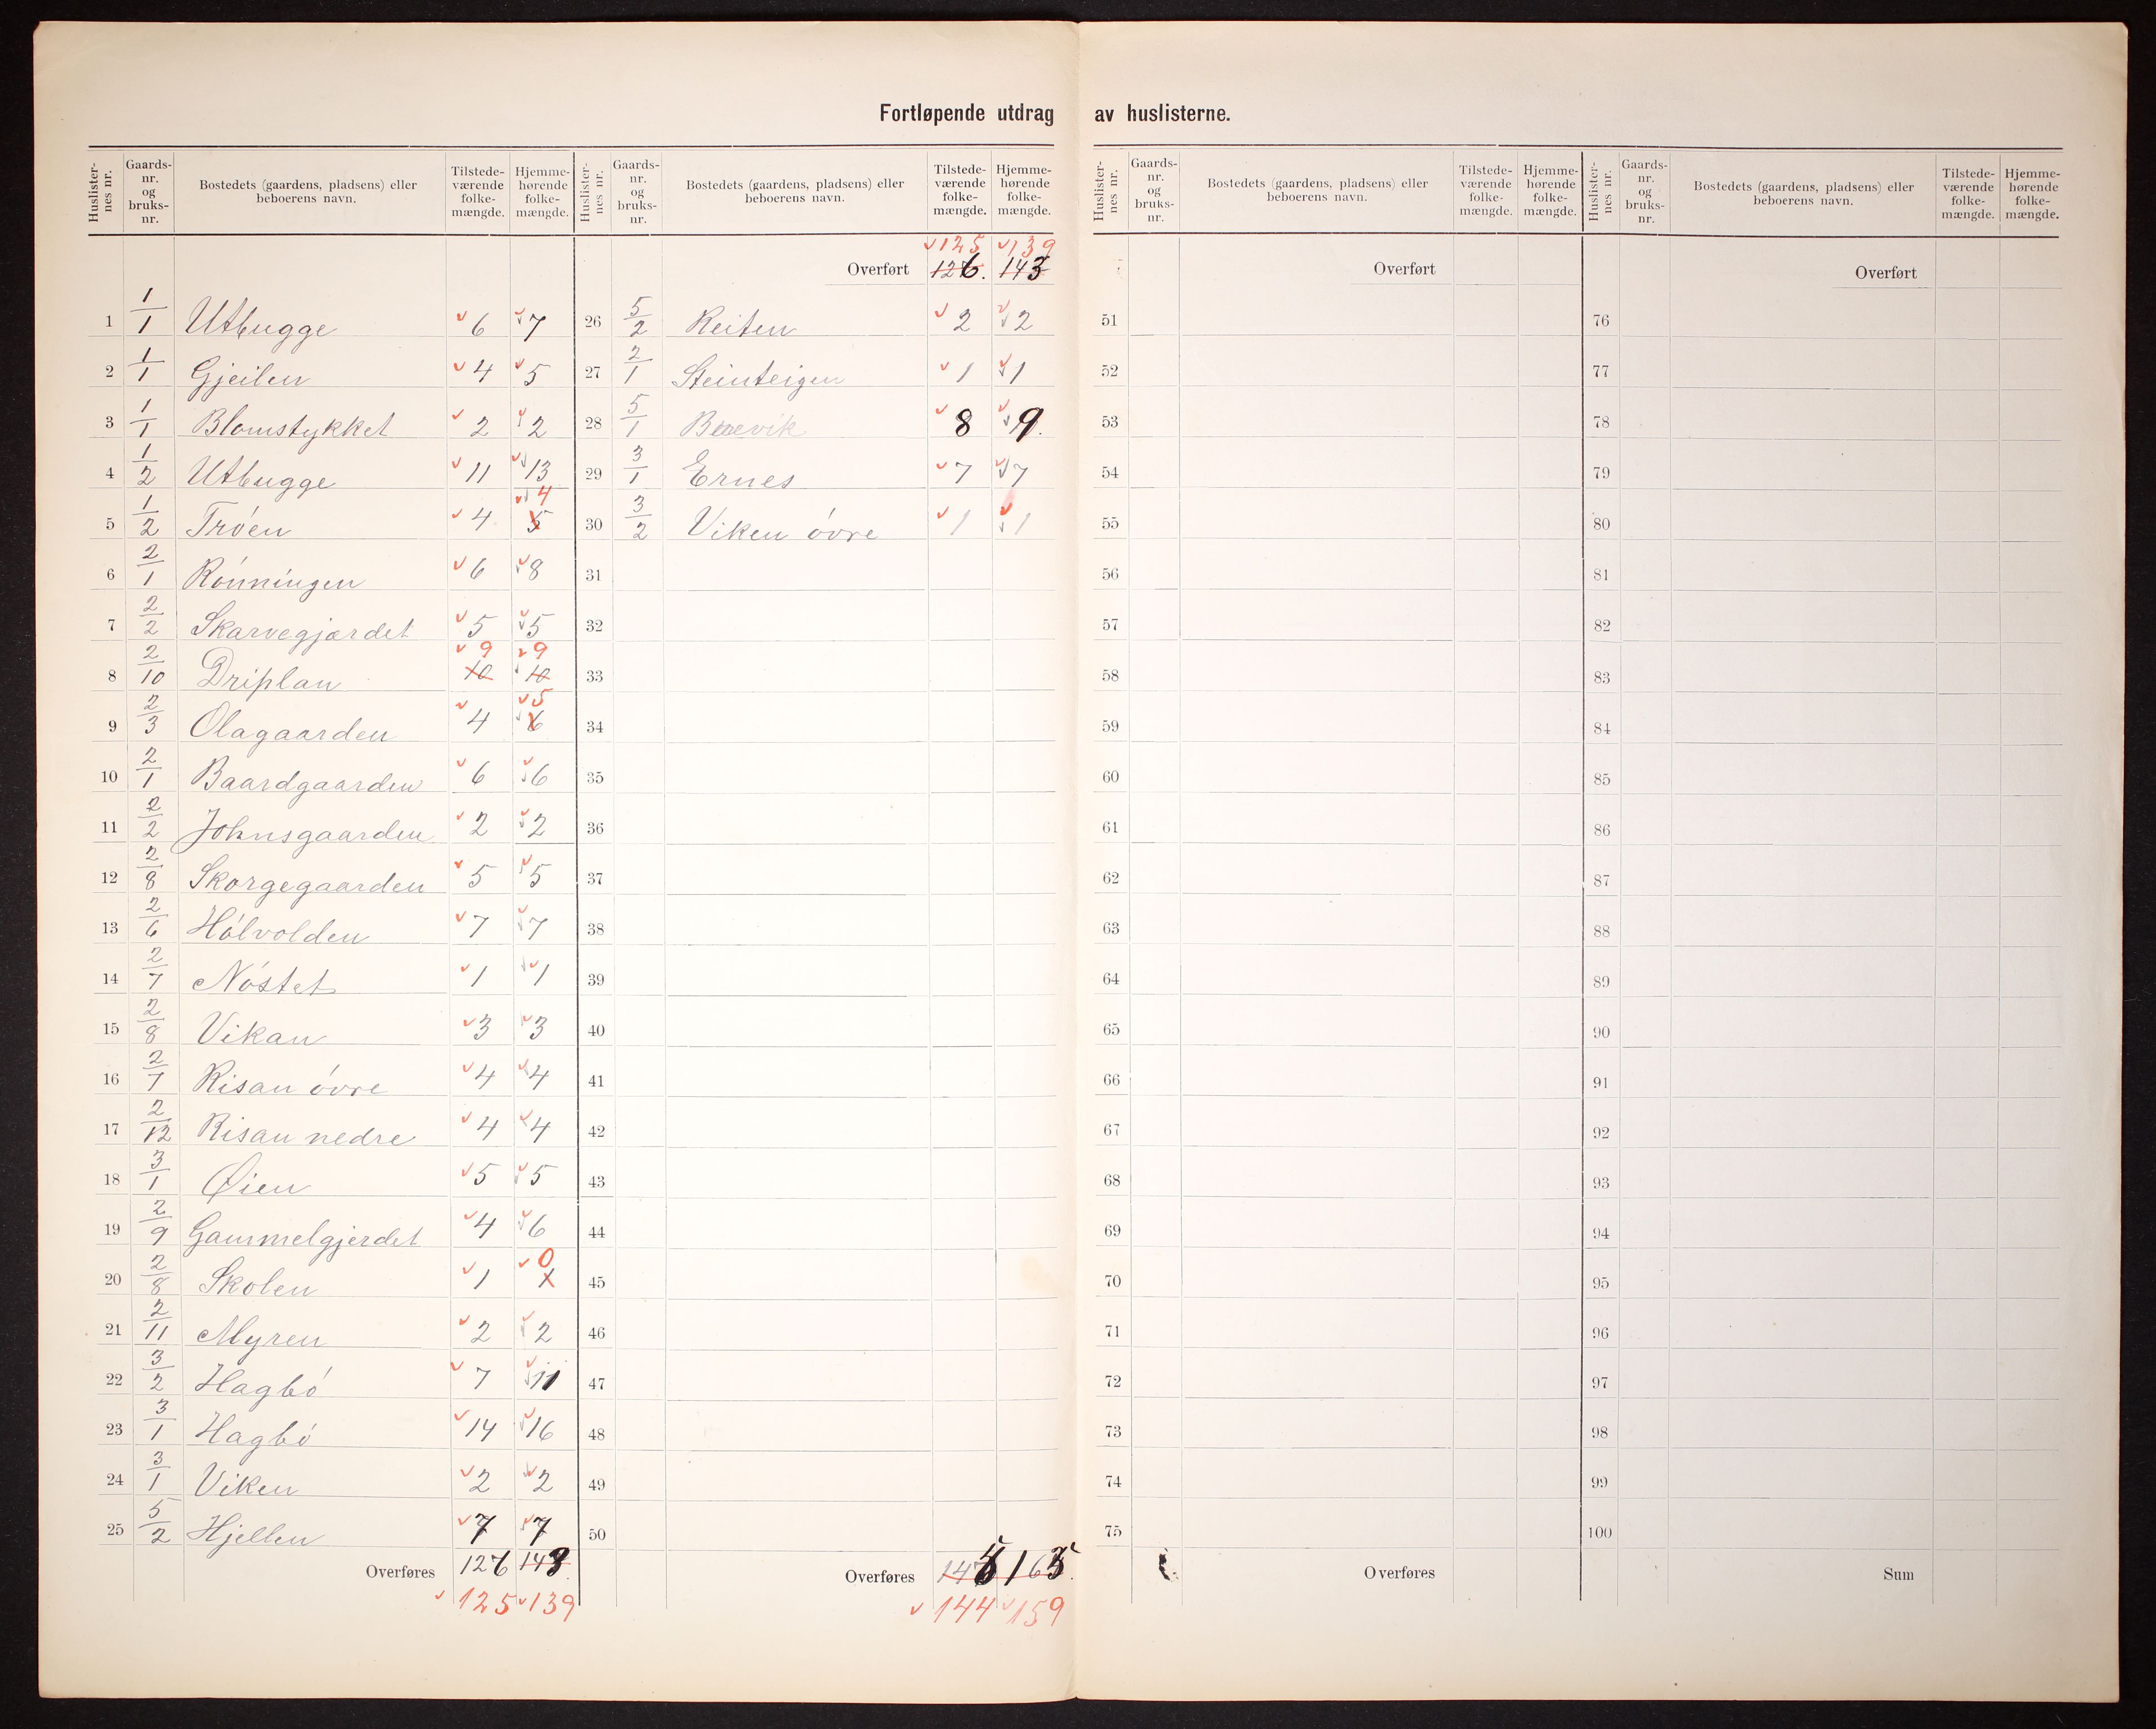 Fortløpende utdrag av huslisterne.
Huslister-nes nr. Gaards-nr. og bruks-nr. Bostedets (gaardens, pladsens) eller beboerens navn. Tilstede-værende folke-mængde. Hjemme-hørende folke-mængde.
1 1/1 Utbugge 6 7
2 1/1 Gjeilen 4 5
3 1/1 Blomstykket 2 2
4 1/2 Utbugge 11 13
5 1/2 Tróen 4 5 4
6 2/1 Rónningen 6 8
7 2/2 Skarvegjærdet 5 5
8 2/10 Driplan 10 9 10 9
9 2/3 Olagaarden 4 6 5
10 2/1 Baardgaarden 6 6
11 2/2 Johnsgaarden 2 2
12 2/8 Skorgegaarden 5 5
13 2/6 Hólvolden 7 7
14 2/7 Nóstet 1 1
15 2/8 Vikan 3 3
16 2/7 Risan óvre 4 4
17 2/12 Risan nedre 4 4
18 3/1 Øien 5 5
19 2/9 Gammelgjerdet 4 6
20 2/8 Skolen 1 1 0
21 2/11 Myren 2 2
22 3/2 Hagbó 7 11
23 3/1 Hagbó 14 16
24 3/1 Viken 2 2
25 5/2 Hjellen 7 7
Overføres 126 143
125 139
Huslister-nes nr. Gaards-nr. og bruks-nr. Bostedets (gaardens, pladsens) eller beboerens navn. Tilstede-værende folke-mængde. Hjemme-hørende folke-mængde.
125 139
Overført 126. 143
26 5/2 Reiten 2 2
27 2/1 Steinteigen 1 1
28 5/1 8 9.
29 3/1 Ernes 7 7
30 3/2 Viken óvre 1 1
31
32
33
34
35
36
37
38
39
40
41
42
43
44
45
46
47
48
49
50
Overføres
144 159
Huslister-nes nr. Gaards-nr. og bruks-nr. Bostedets (gaardens, pladsens) eller beboerens navn. Tilstede-værende folke-mængde. Hjemme-hørende folke-mængde.
Overført
51
52
53
54
55
56
57
58
59
60
61
62
63
64
65
66
67
68
69
70
71
72
73
74
75
Overføres
Huslister-nes nr. Gaards-nr. og bruks-nr. Bostedets (gaardens, pladsens) eller beboerens navn. Tilstede-værende folke-mængde. Hjemme-hørende folke-mængde.
Overført
76
77
78
79
80
81
82
83
84
85
86
87
88
89
90
91
92
93
94
95
96
97
98
99
100
Sum